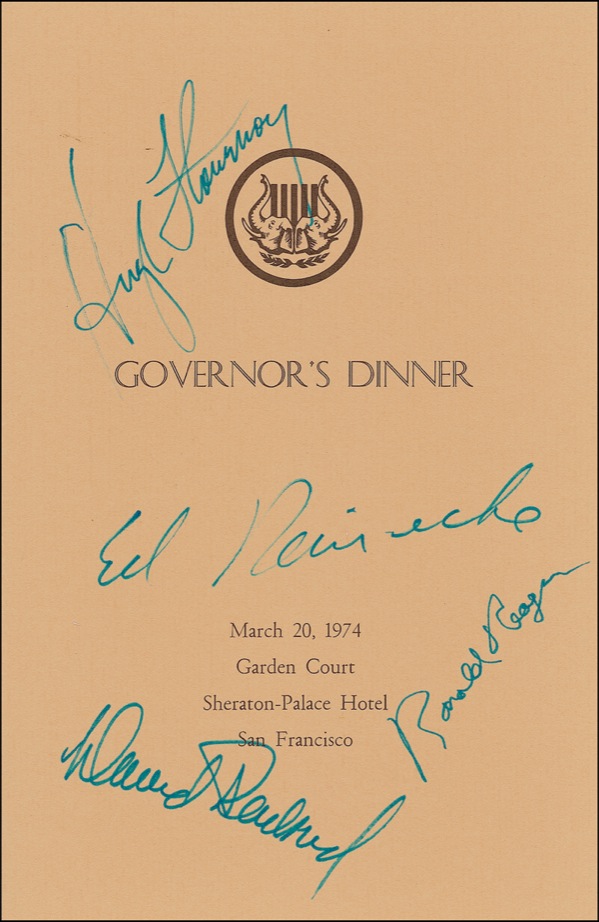 Hugh Flournoy
GOVERNOR'S DINNER
Ed Reinecke
March 20, 1974
Garden Court
Sheraton-Palace Hotel
San Francisco
Ronald Reagan
David Packard